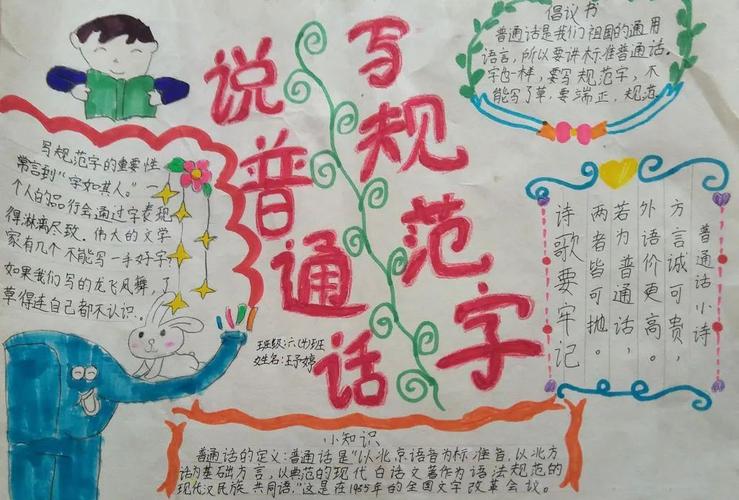 说普通话
写规范字
倡议书
普通话是我们祖国的通用
语言，所以要讲标准普通话。
字也一样，要写规范字，不
能写了草，要端正，规范
写规范字的重要性
常言到“字如其人。”一
个人的品行会通过字表现
得淋漓尽致．伟大的文学
家有几个不能写一手好字，
如果我们写的龙飞凤舞，了
草得连自己都不认识．
班级：六(4)班
姓名：王予婷
普通话小诗
方言诚可贵，
外语价更高。
若为普通话，
两者皆可抛。
诗歌要牢记
小知识
普通话的定义：普通话是“以北京语音为标准音，以北方
话为基础方言，以典范的现代白话文著作为语法规范的
现代汉民族共同语。”这是在1985年的全国文字改革会议。